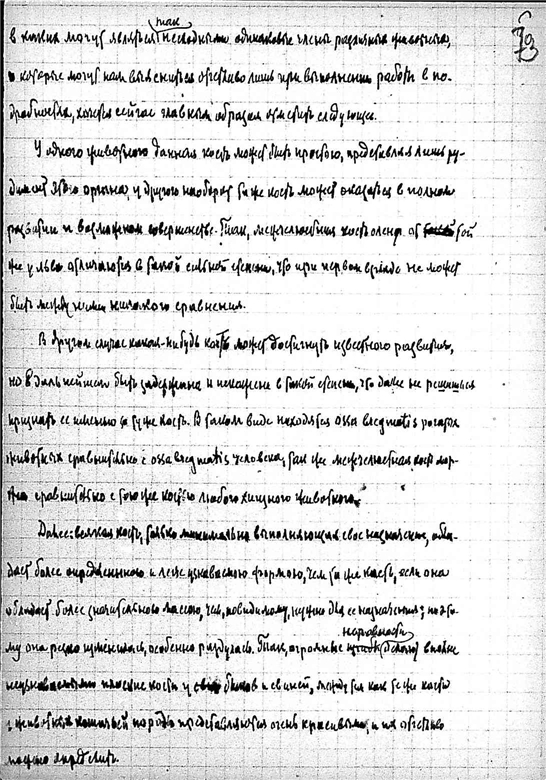 73
так
в каких могут являться несходными одинаковые члены различных животных,
и которые могут нам выясниться отчетливо лишь при выполнении работы в по-
дробностях, хочется сейчас главным образом отметить следующие.
У одного животного данная кость может быть простою, представляя лишь ру-
димент этого органа, у другого наоборот та же кость может оказаться в полном
развитии и возможном совершенстве. Так, межчелюстная кость оленя от той
же у льва отличаются в такой сильной степени, что при первом взгляде не может
быть между ними никакого сравнения.
В другом случае какая-нибудь кость может достигнуть известного развития,
но в дальнейшем быть задержана и искажена в такой степени, что даже не решишься
признать ее именно за ту же кость. В таком виде находятся ossa bregmatis рогатых
животных сравнительно с ossa bregmatis человека, так же межчелюстная кость мор-
жа сравнительно с тою же костью любого хищного животного.
Далее: всякая кость, только минимально выполняющая свое назначение, обла-
дает более определенною и легче узнаваемою формою, чем та же кость, если она
обладает более значительною массою, чем, повидимому, нужно для ее назначения; поэто-
му она резко изменилась, особенно раздулась. Так, огромные
неровности
вполне
неузнаваемыми плоские кости у быков и свиней, между тем как те же кости
у животных кошачьей породы представляются очень красивыми, и их отчетливо
можно определить.